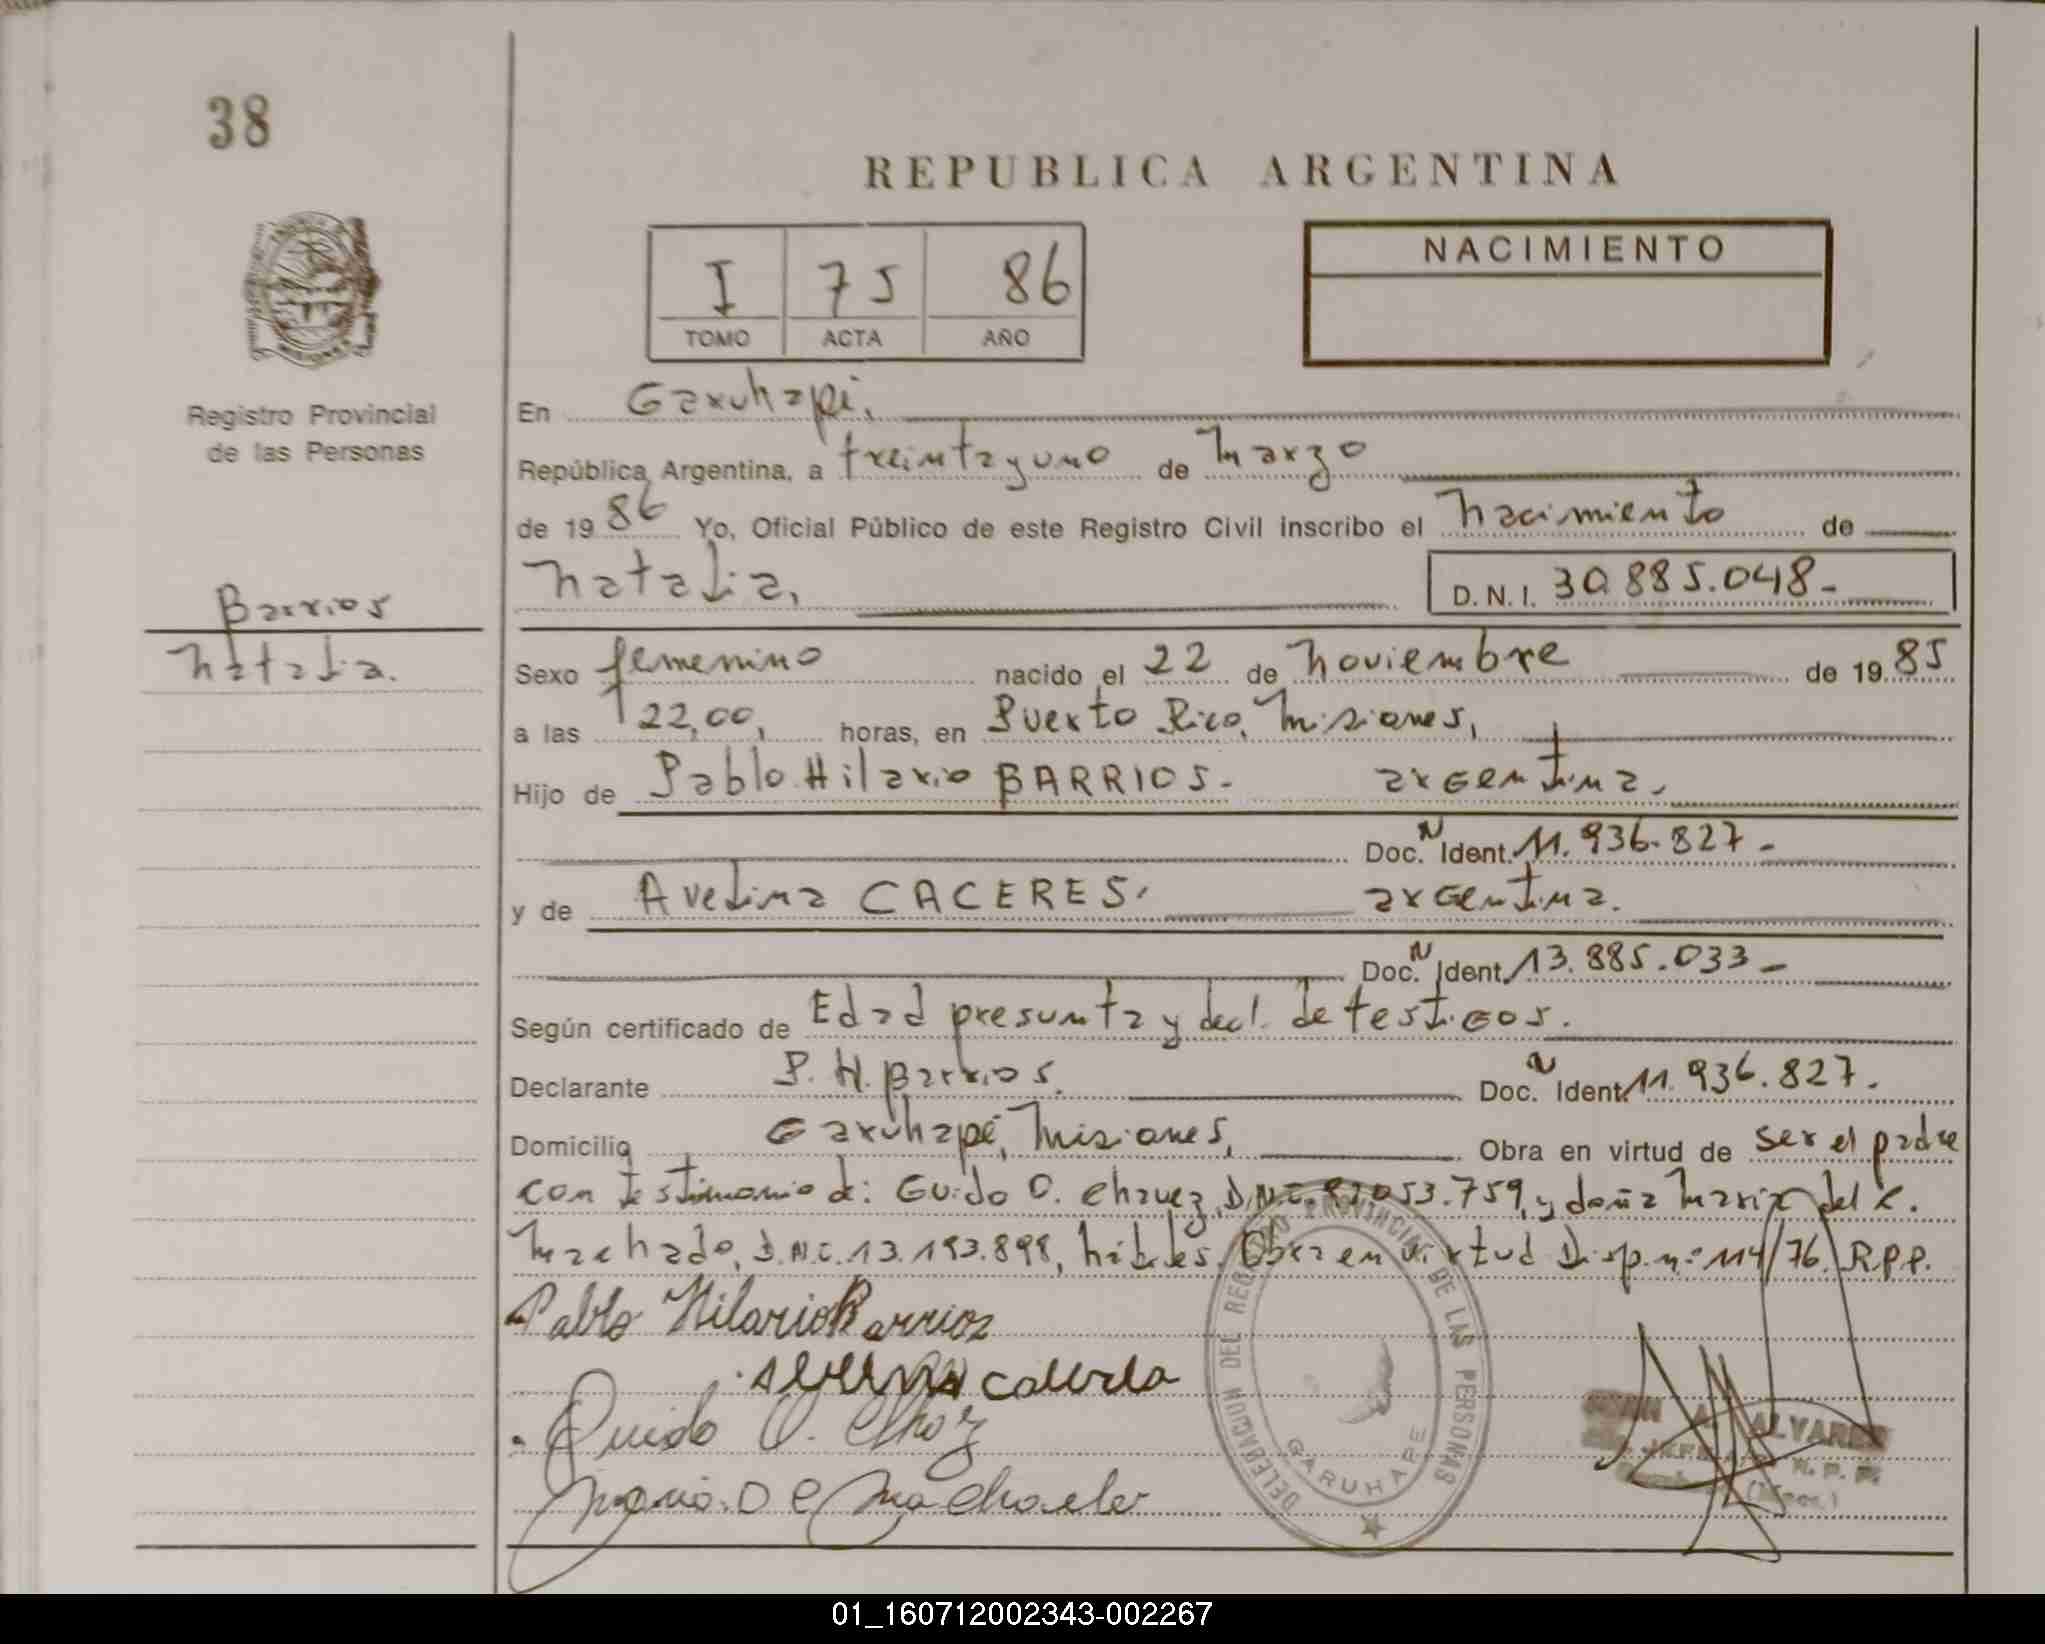 38
REPUBLICA ARGENTINA
I 75 86
TOMO ACTA AÑO
NACIMIENTO
Registro Provincial
de las Personas
Barrios
Natalia.
En Garuhapé,
República Argentina, a treinta y uno de Marzo
de 1986 Yo, Oficial Público de este Registro Civil inscribo el Nacimiento de
Natalia, D.N.I. 30.885.048-
Sexo femenino nacido el 22 de Noviembre de 1985
a las 22,00, horas, en Puerto Rico, Misiones,
Hijo de Pablo Hilario BARRIOS- argentina,
Doc. N Ident. 11.936.827-
y de Avelina CACERES, argentina.
Doc. N Ident. 13.885.033-
Según certificado de Edad presunta y decl. de testigos.
Declarante P. H. Barrios. Doc. N Ident. 11.936.827.
Domicilio Garuhapé, Misiones, Obra en virtud de ser el padre
con testimonio de: Guido O. Chavez, D.N.I. 053.759, y doña Maria del C.
Machado, D.N.I. 13.193.898, hábiles. Obra en virtud Disp. nº 114/76 R.P.P.
Pablo Hilario Barrios
Guido O.
DELEGACION DEL REGISTRO PROVINCIAL DE LAS PERSONAS
GARUHAPE
ALVAREZ
01_160712002343-002267